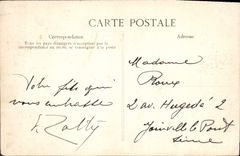 CARTE POSTALE
Correspondance
Tous les pays étrangers n'acceptent pas la
correspondance au recto, se renseigner à la poste
Adresse
Votre fils qui
vous embrasse
Madame
Roux
2 av. Hugedé 2
Joinville le Pont
Seine